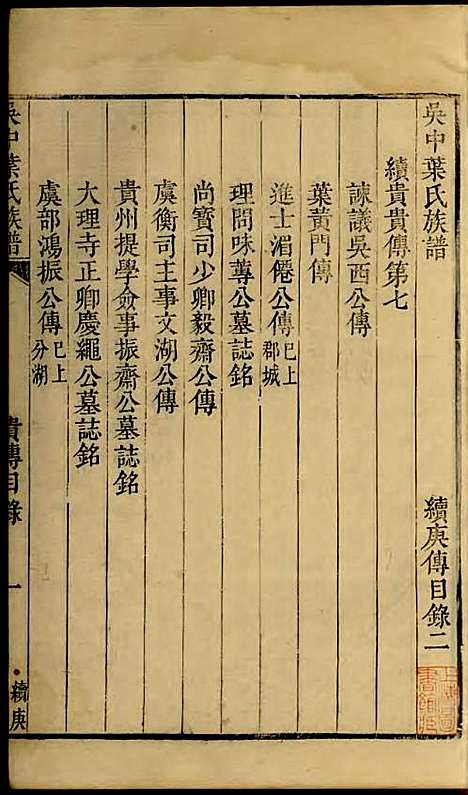 吳中葉氏族譜 續庚傳目錄二
續貴貴傳第七
諫議吳西公傳
葉黃門傳
進士湄僊公傳 已上郡城
理問味蓴公墓誌銘
尚寶司少卿毅齋公傳
虞衡司主事文湖公傳
貴州提學僉事振齋公墓誌銘
大理寺正卿慶繩公墓誌銘
虞部鴻振公傳 已上分湖
吳中葉氏族譜 貴傳目錄 一 續庚